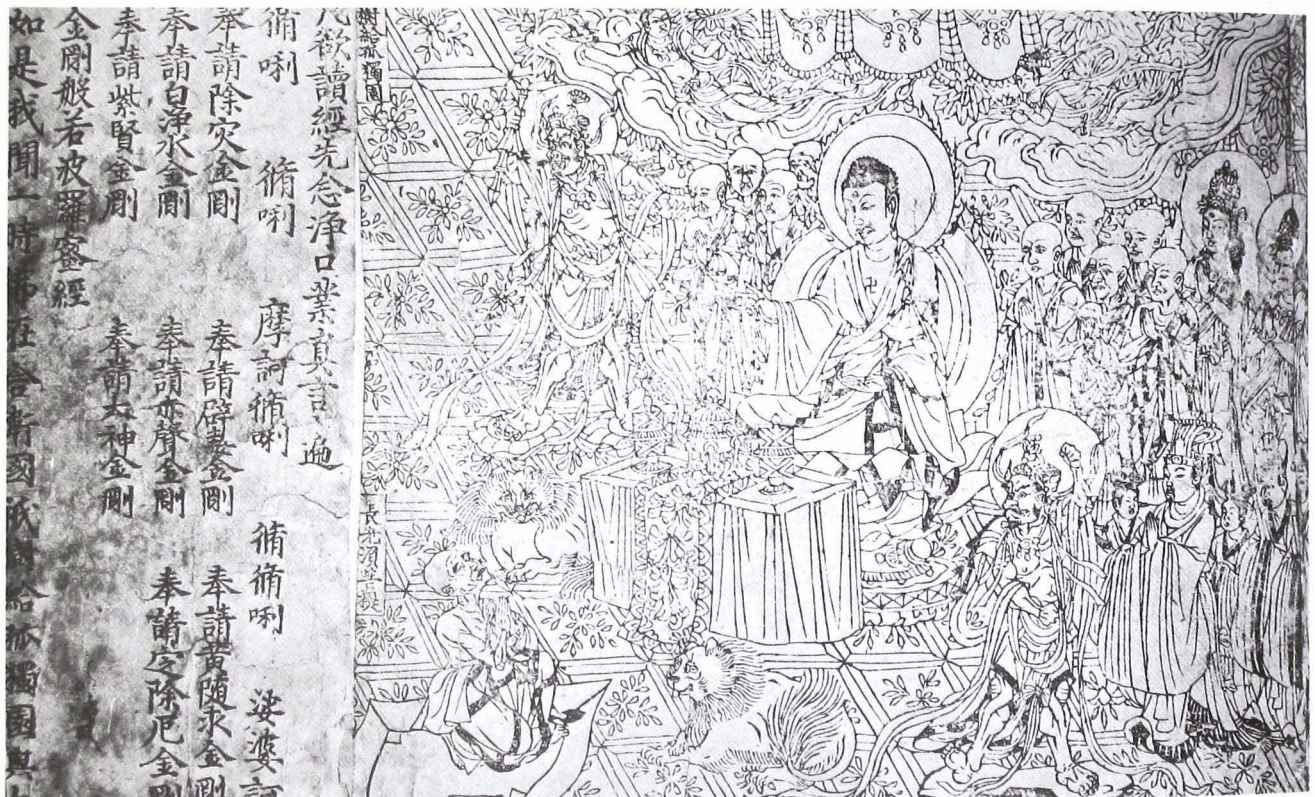 樹給孤獨園
長老須菩提
凡欲讀經先念淨口業真言一遍
脩唎 脩唎 摩訶脩唎 脩脩唎 娑婆訶
奉請除灾金剛 奉請辟毒金剛 奉請黄隨求金剛
奉請白淨水金剛 奉請赤聲金剛 奉請定除厄金剛
奉請紫賢金剛 奉請大神金剛
金剛般若波羅蜜經
如是我聞一時佛在舍衛國祇樹給孤獨園與